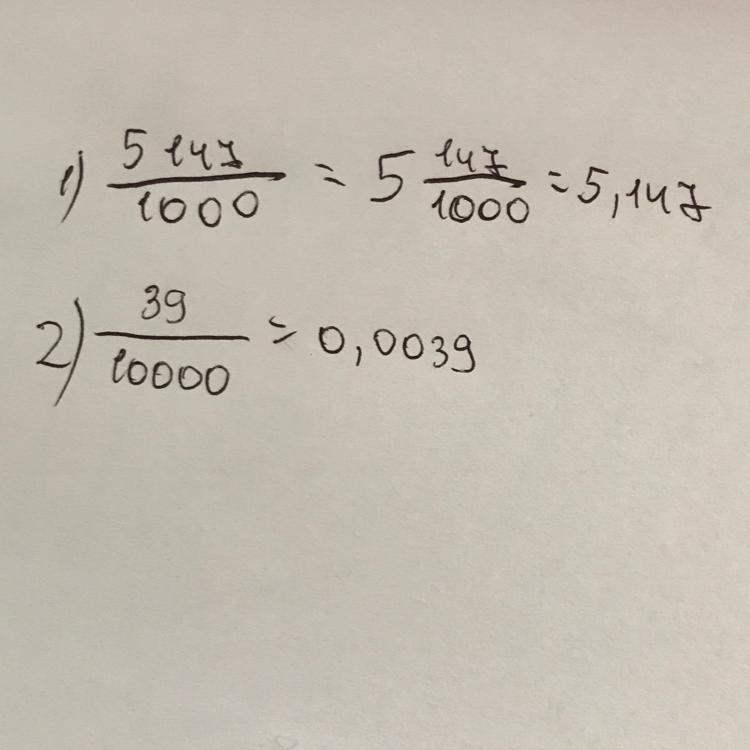 1) 5147/1000 = 5 147/1000 = 5,147
2) 39/10000 = 0,0039